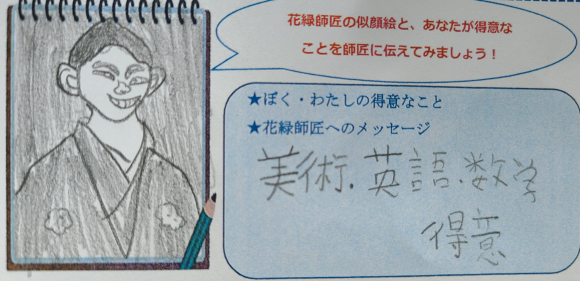 花緑師匠の似顔絵と、あなたが得意な
ことを師匠に伝えてみましょう！
★ぼく・わたしの得意なこと
★花緑師匠へのメッセージ
美術.英語.数学
得意